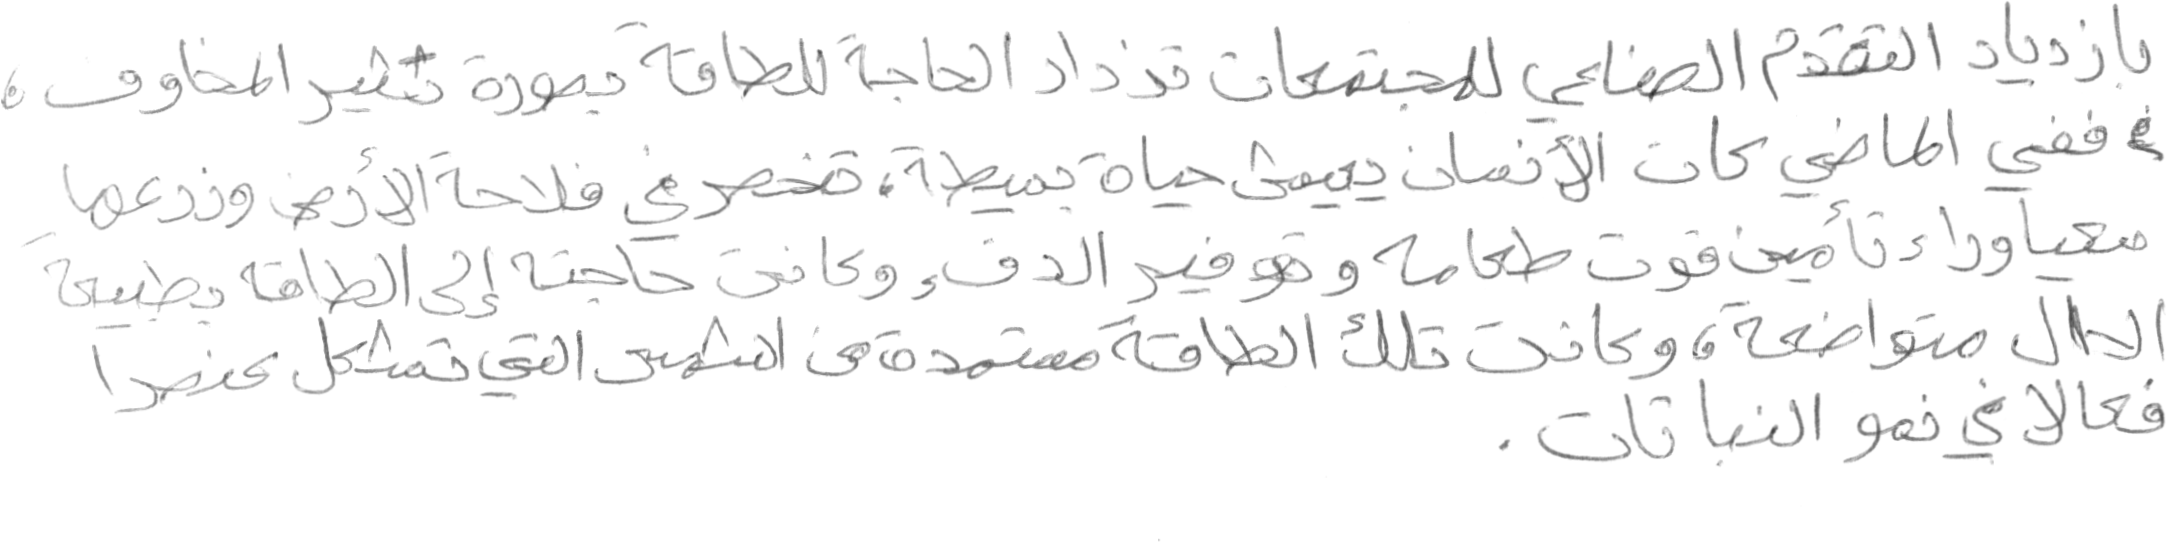 بازدياد التقدم الصناعي للمجتمعات تزداد الحاجة للطاقة بصورة تثير المخاوف،
ففي الماضي كان الأنسان يعيش حياة بسيطة، تنحصر في فلاحة الأرض وزرعها
سعيا وراء تأمين قوت طعامه وتوفير الدفء وكانت حاجته إلى الطاقة بطبيعة
الحال متواضعة، وكانت تلك الطاقة مستمدة من الشمس التي تشكل عنصرا
فعالا في نمو النباتات.